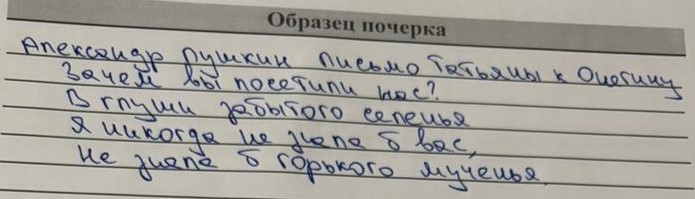 Образец почерка
Александр Пушкин письмо Татьяны к Онегину
Зачем вы посетили нас?
В глуши забытого селенья
Я никогда не знала б вас,
Не знала б горького мученья.